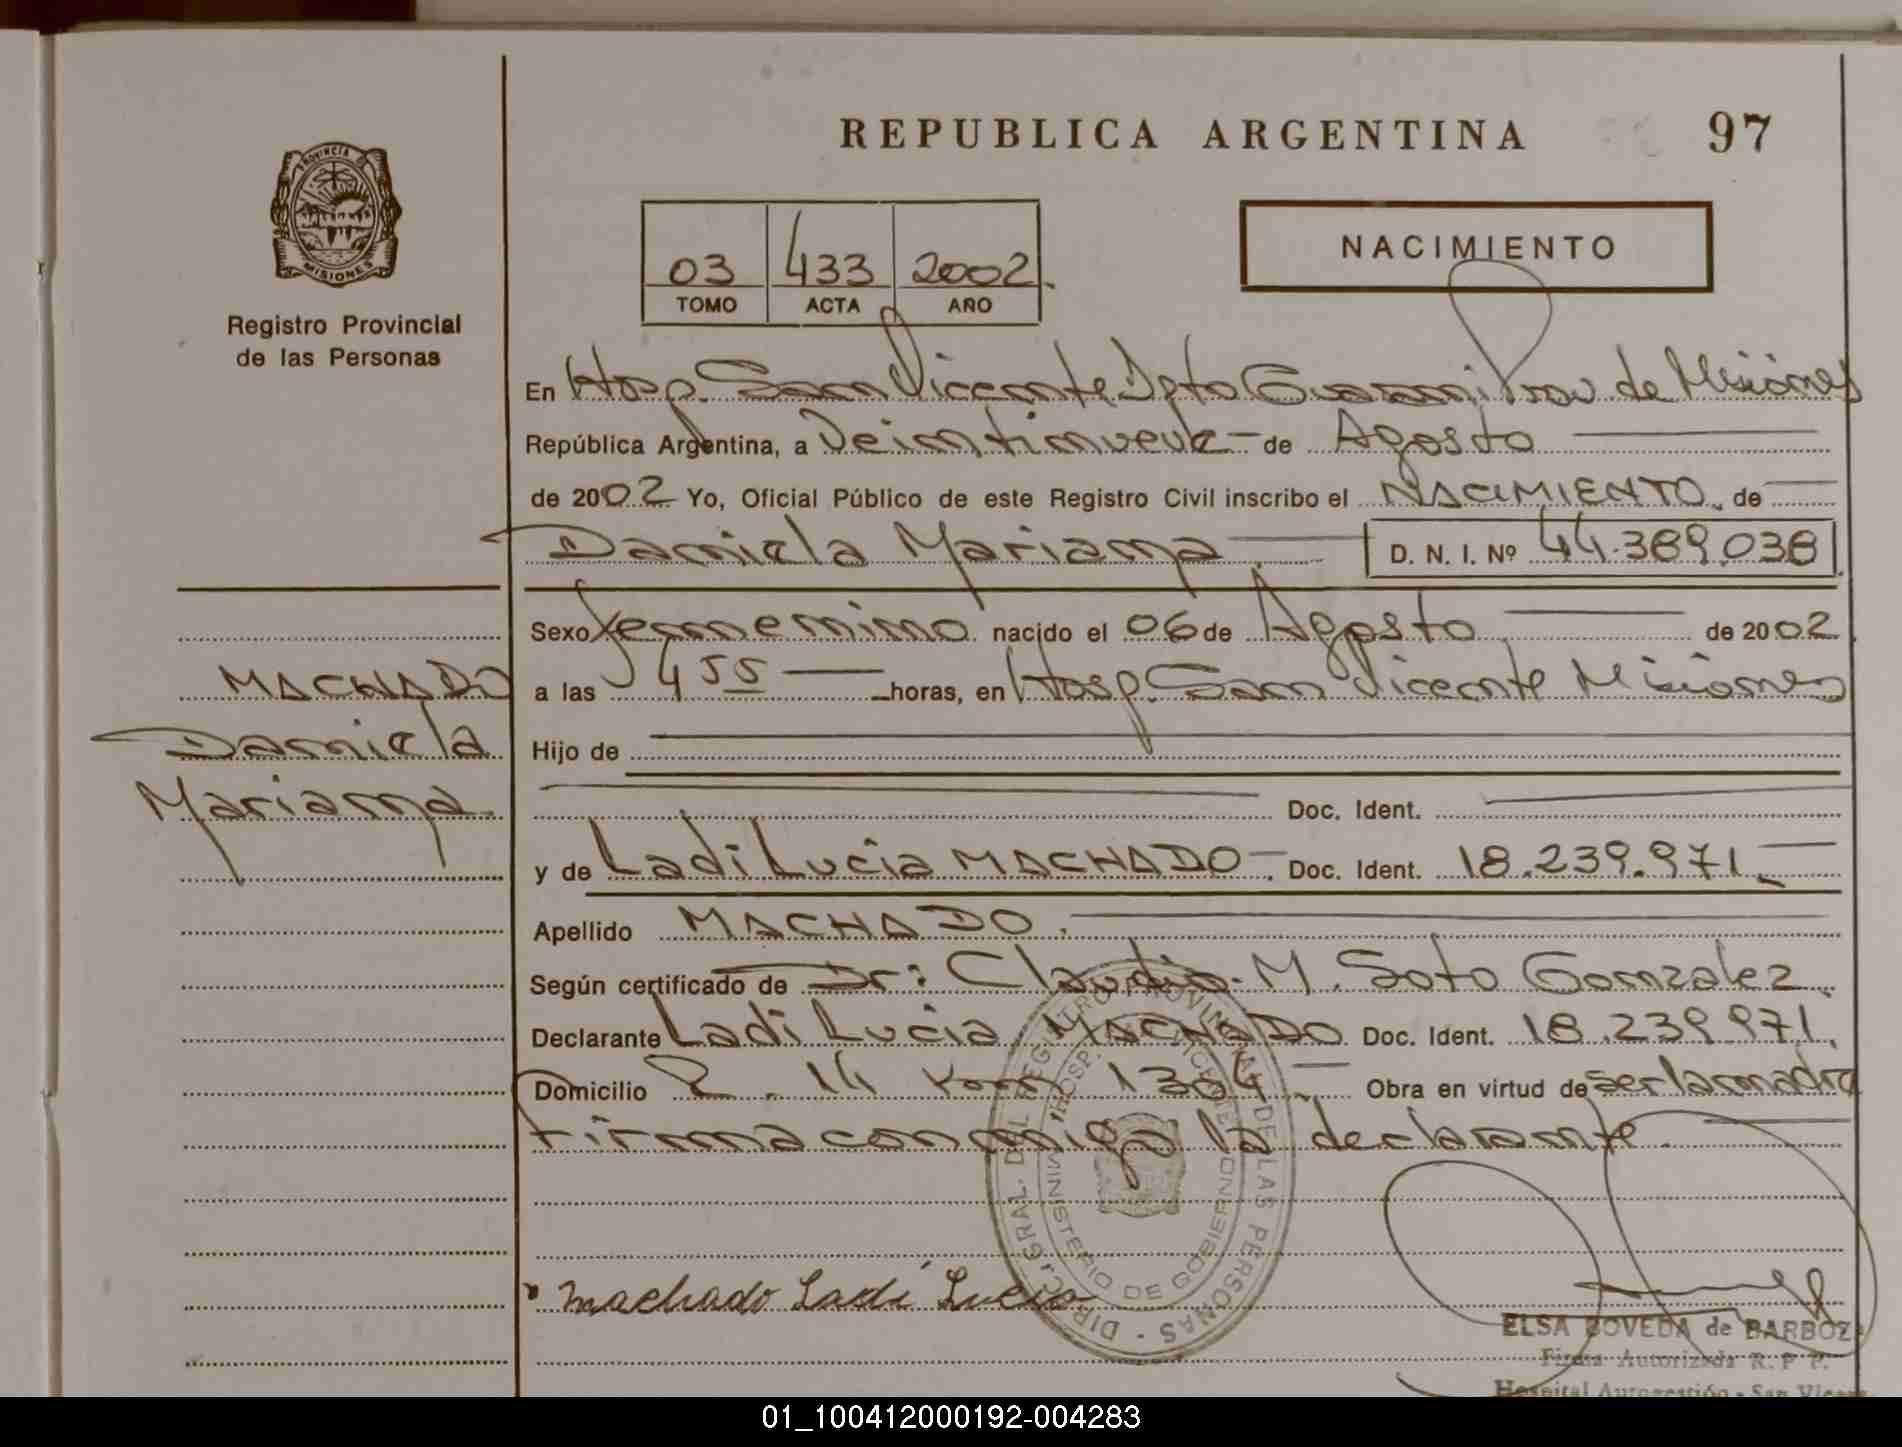 REPUBLICA ARGENTINA 97
PROVINCIA DE
MISIONES
Registro Provincial
de las Personas
03 433 2002
TOMO ACTA AÑO
NACIMIENTO
En Hosp. San Vicente Dpto Guarani Prov de Misiones
República Argentina, a Veintinueve de Agosto
de 2002 Yo, Oficial Público de este Registro Civil inscribo el NACIMIENTO de
Daniela Mariana D. N. I. Nº 44.389.038
Sexo femenino nacido el 06 de Agosto de 2002
MACHADO
a las 4 55 horas, en Hosp. San Vicente Misiones
Daniela
Hijo de
Mariana
Doc. Ident.
y de Ladi Lucia MACHADO Doc. Ident. 18.239.971
Apellido MACHADO.
Según certificado de Dr: Claudio M. Soto Gonzalez
Declarante Ladi Lucia MACHADO Doc. Ident. 18.239.971
Domicilio R. 14 Km 1304 Obra en virtud de ser la madre
Firma conmigo la declarante.
DIRC. GRAL. DEL REGISTRO PROVINCIAL DE LAS PERSONAS
HOSP. VICENTE
MINISTERIO DE GOBIERNO
Machado Ladí Lucia
ELSA BOVEDA de BARBOZ
Firma Autorizada R. P. P.
Hospital Autogestión - San Vicen
01_100412000192-004283